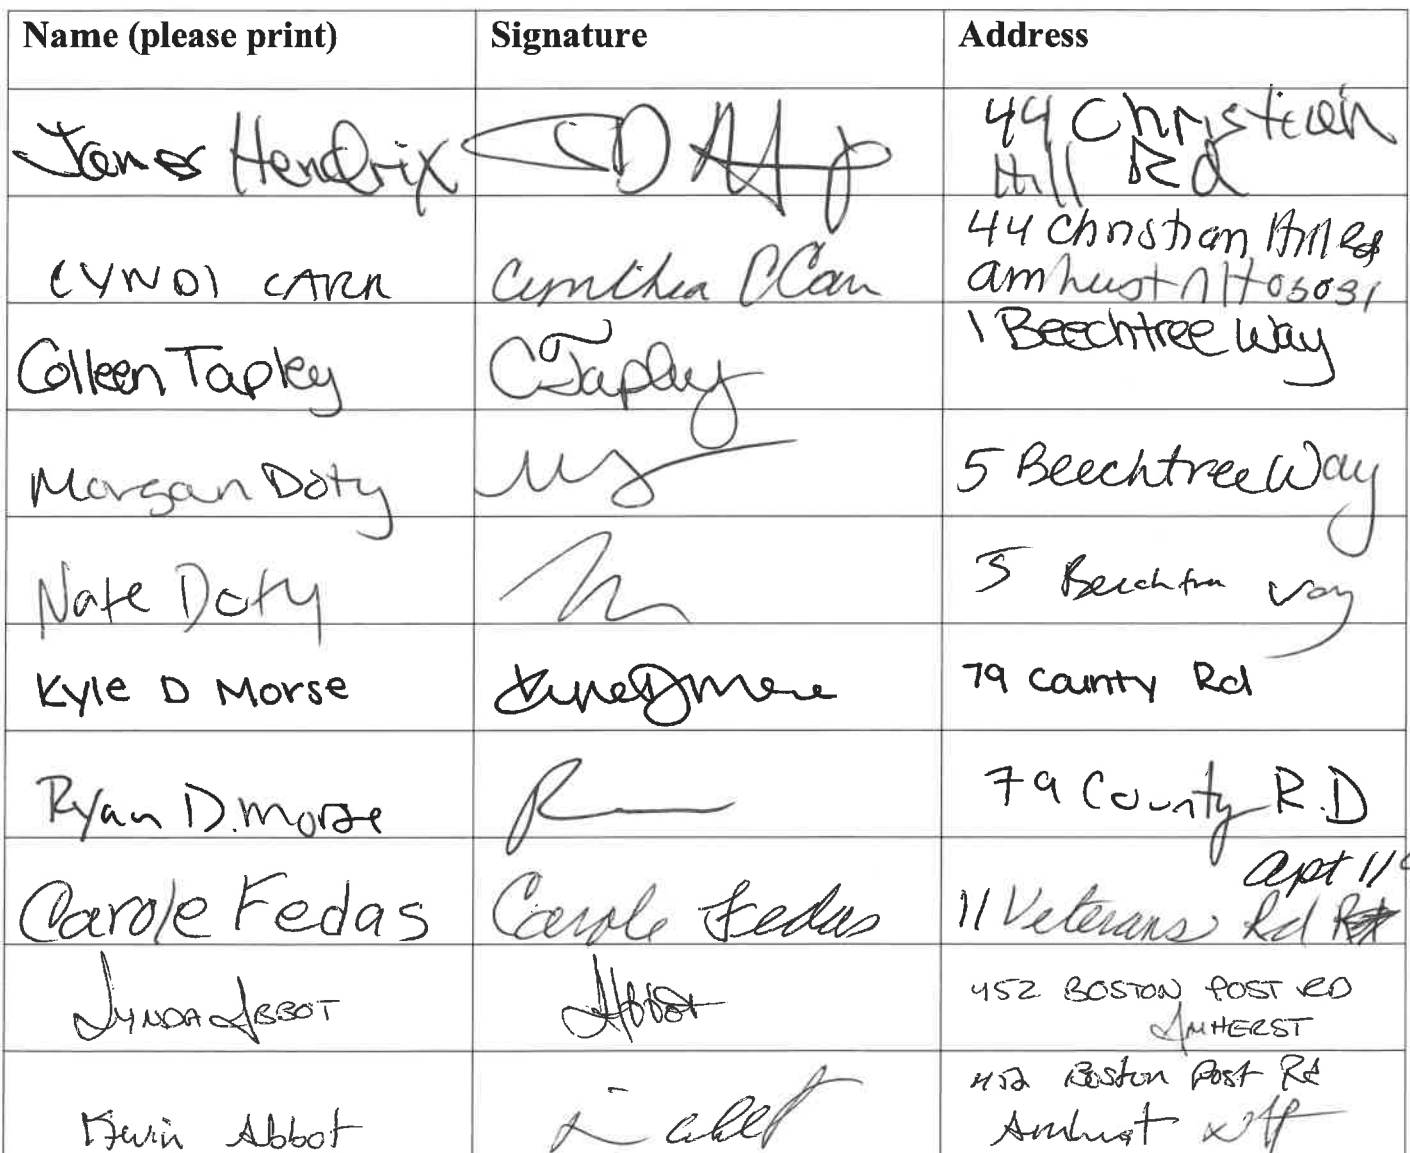 Name (please print) Signature Address
James Hendrix 44 Christian
Hill Rd
CYNDI CARR Cynthia C Carr 44 Christian Hill Rd
Amherst NH 03031
Colleen Tapley CTapley 1 Beechtree Way
Morgan Doty 5 Beechtree Way
Nate Doty 5 Beechtree Way
Kyle D Morse Kyle D Morse 79 County Rd
Ryan D. Morse 79 County R.D
apt 11
Carole Fedas Carole Fedas 11 Veterans Rd
LYNDA ABBOT Abbot 452 BOSTON POST RD
AMHERST
Kevin Abbot 452 Boston Post Rd
Amherst NH